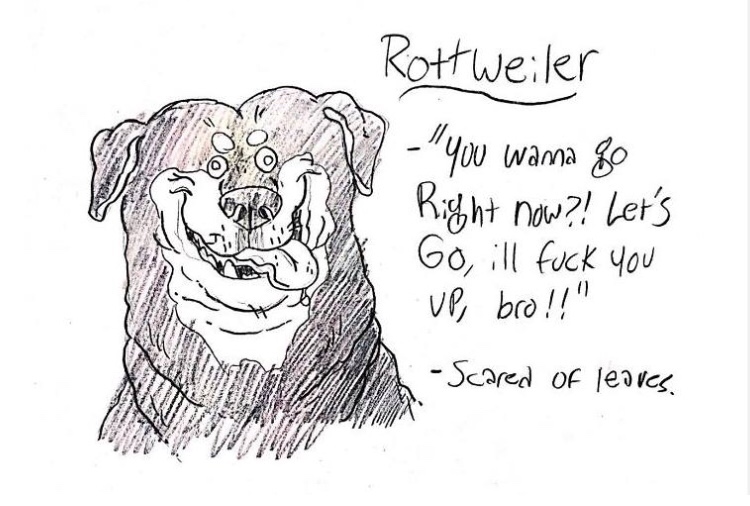 Rottweiler
- "You wanna go
Right now?! Let's
Go, ill fuck you
up, bro!!"
- Scared of leaves.